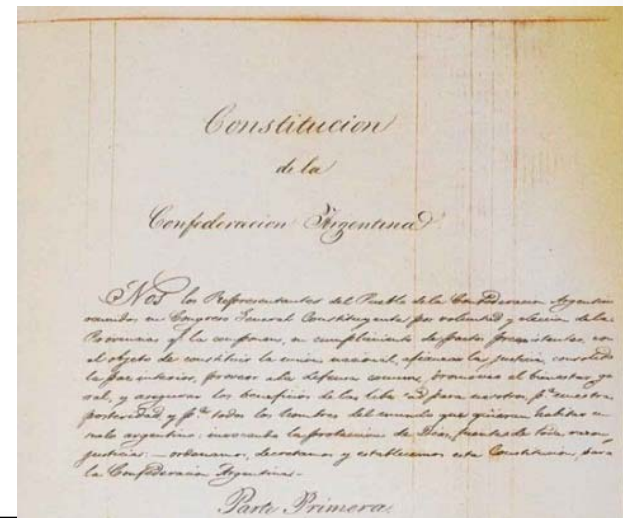 Constitucion
de la
Confederacion Argentina
Nos los Representantes del Pueblo de la Confederacion Argentin
reunidos en Congreso General Constituyente por voluntad y eleccion de las
Provincias qe. la componen, en cumplimiento de pactos preexistentes, con
el objeto de constituir la union nacional, afianzar la justicia, consolidar
la paz interior, proveer a la defensa comun, promover el bienestar ge
ral, y asegurar los beneficios de la libertad para nosotros, pa. nuestra
posteridad y pa. todos los hombres del mundo que quieran habitar en
suelo argentino: invocando la proteccion de Dios, fuente de toda razon y
justicia: — ordenamos, decretamos y establecemos esta Constitucion, para
la Confederacion Argentina.-
Parte Primera.